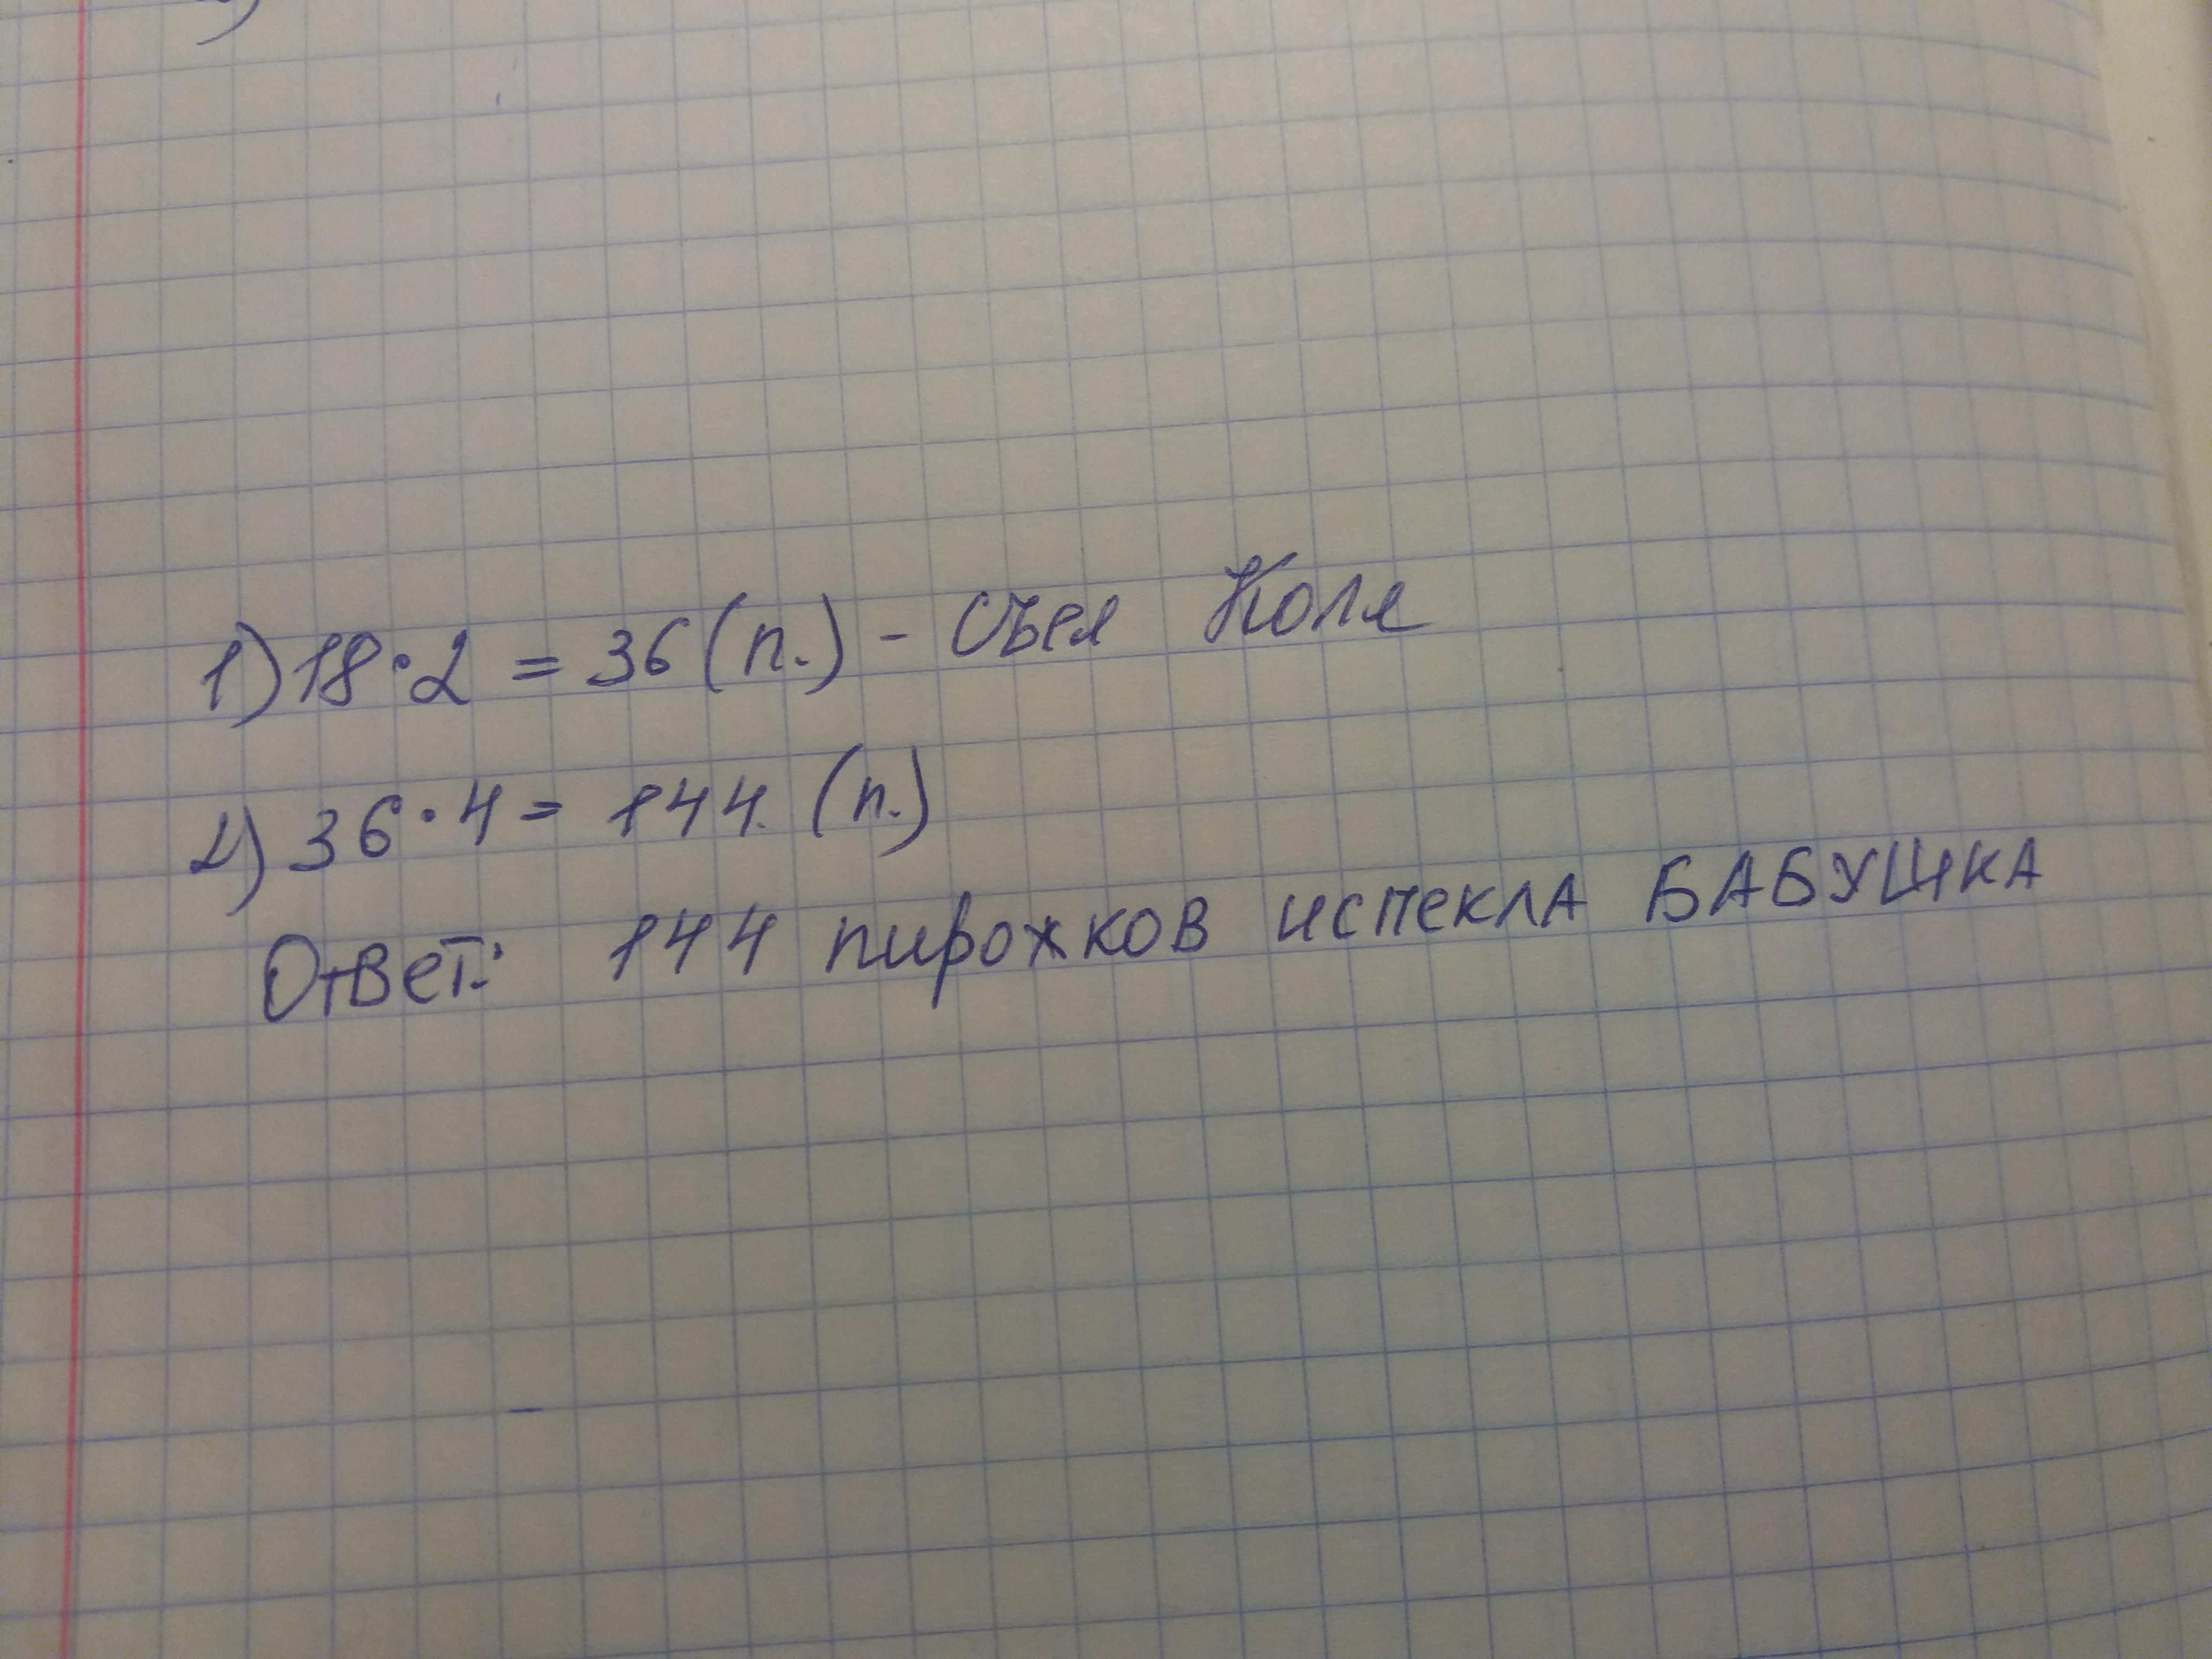 1) 18 · 2 = 36 (п.) - Съел Коля
2) 36 · 4 = 144. (п.)
Ответ: 144 пирожков испекла БАБУШКА